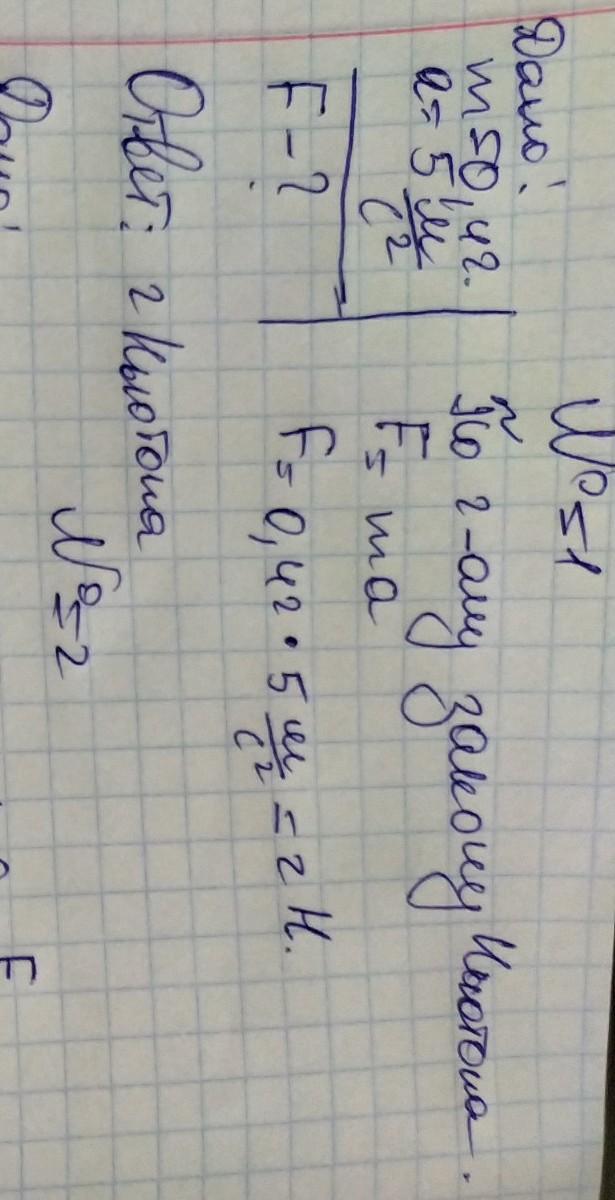 №1
Дано:
m=0,4г.
a=5 м/с²
F-?
По 2-ому закону Ньютона.
F=ma
F=0,4г·5 м/с²=2 Н.
Ответ: 2 Ньютона
№2
Дано:
F